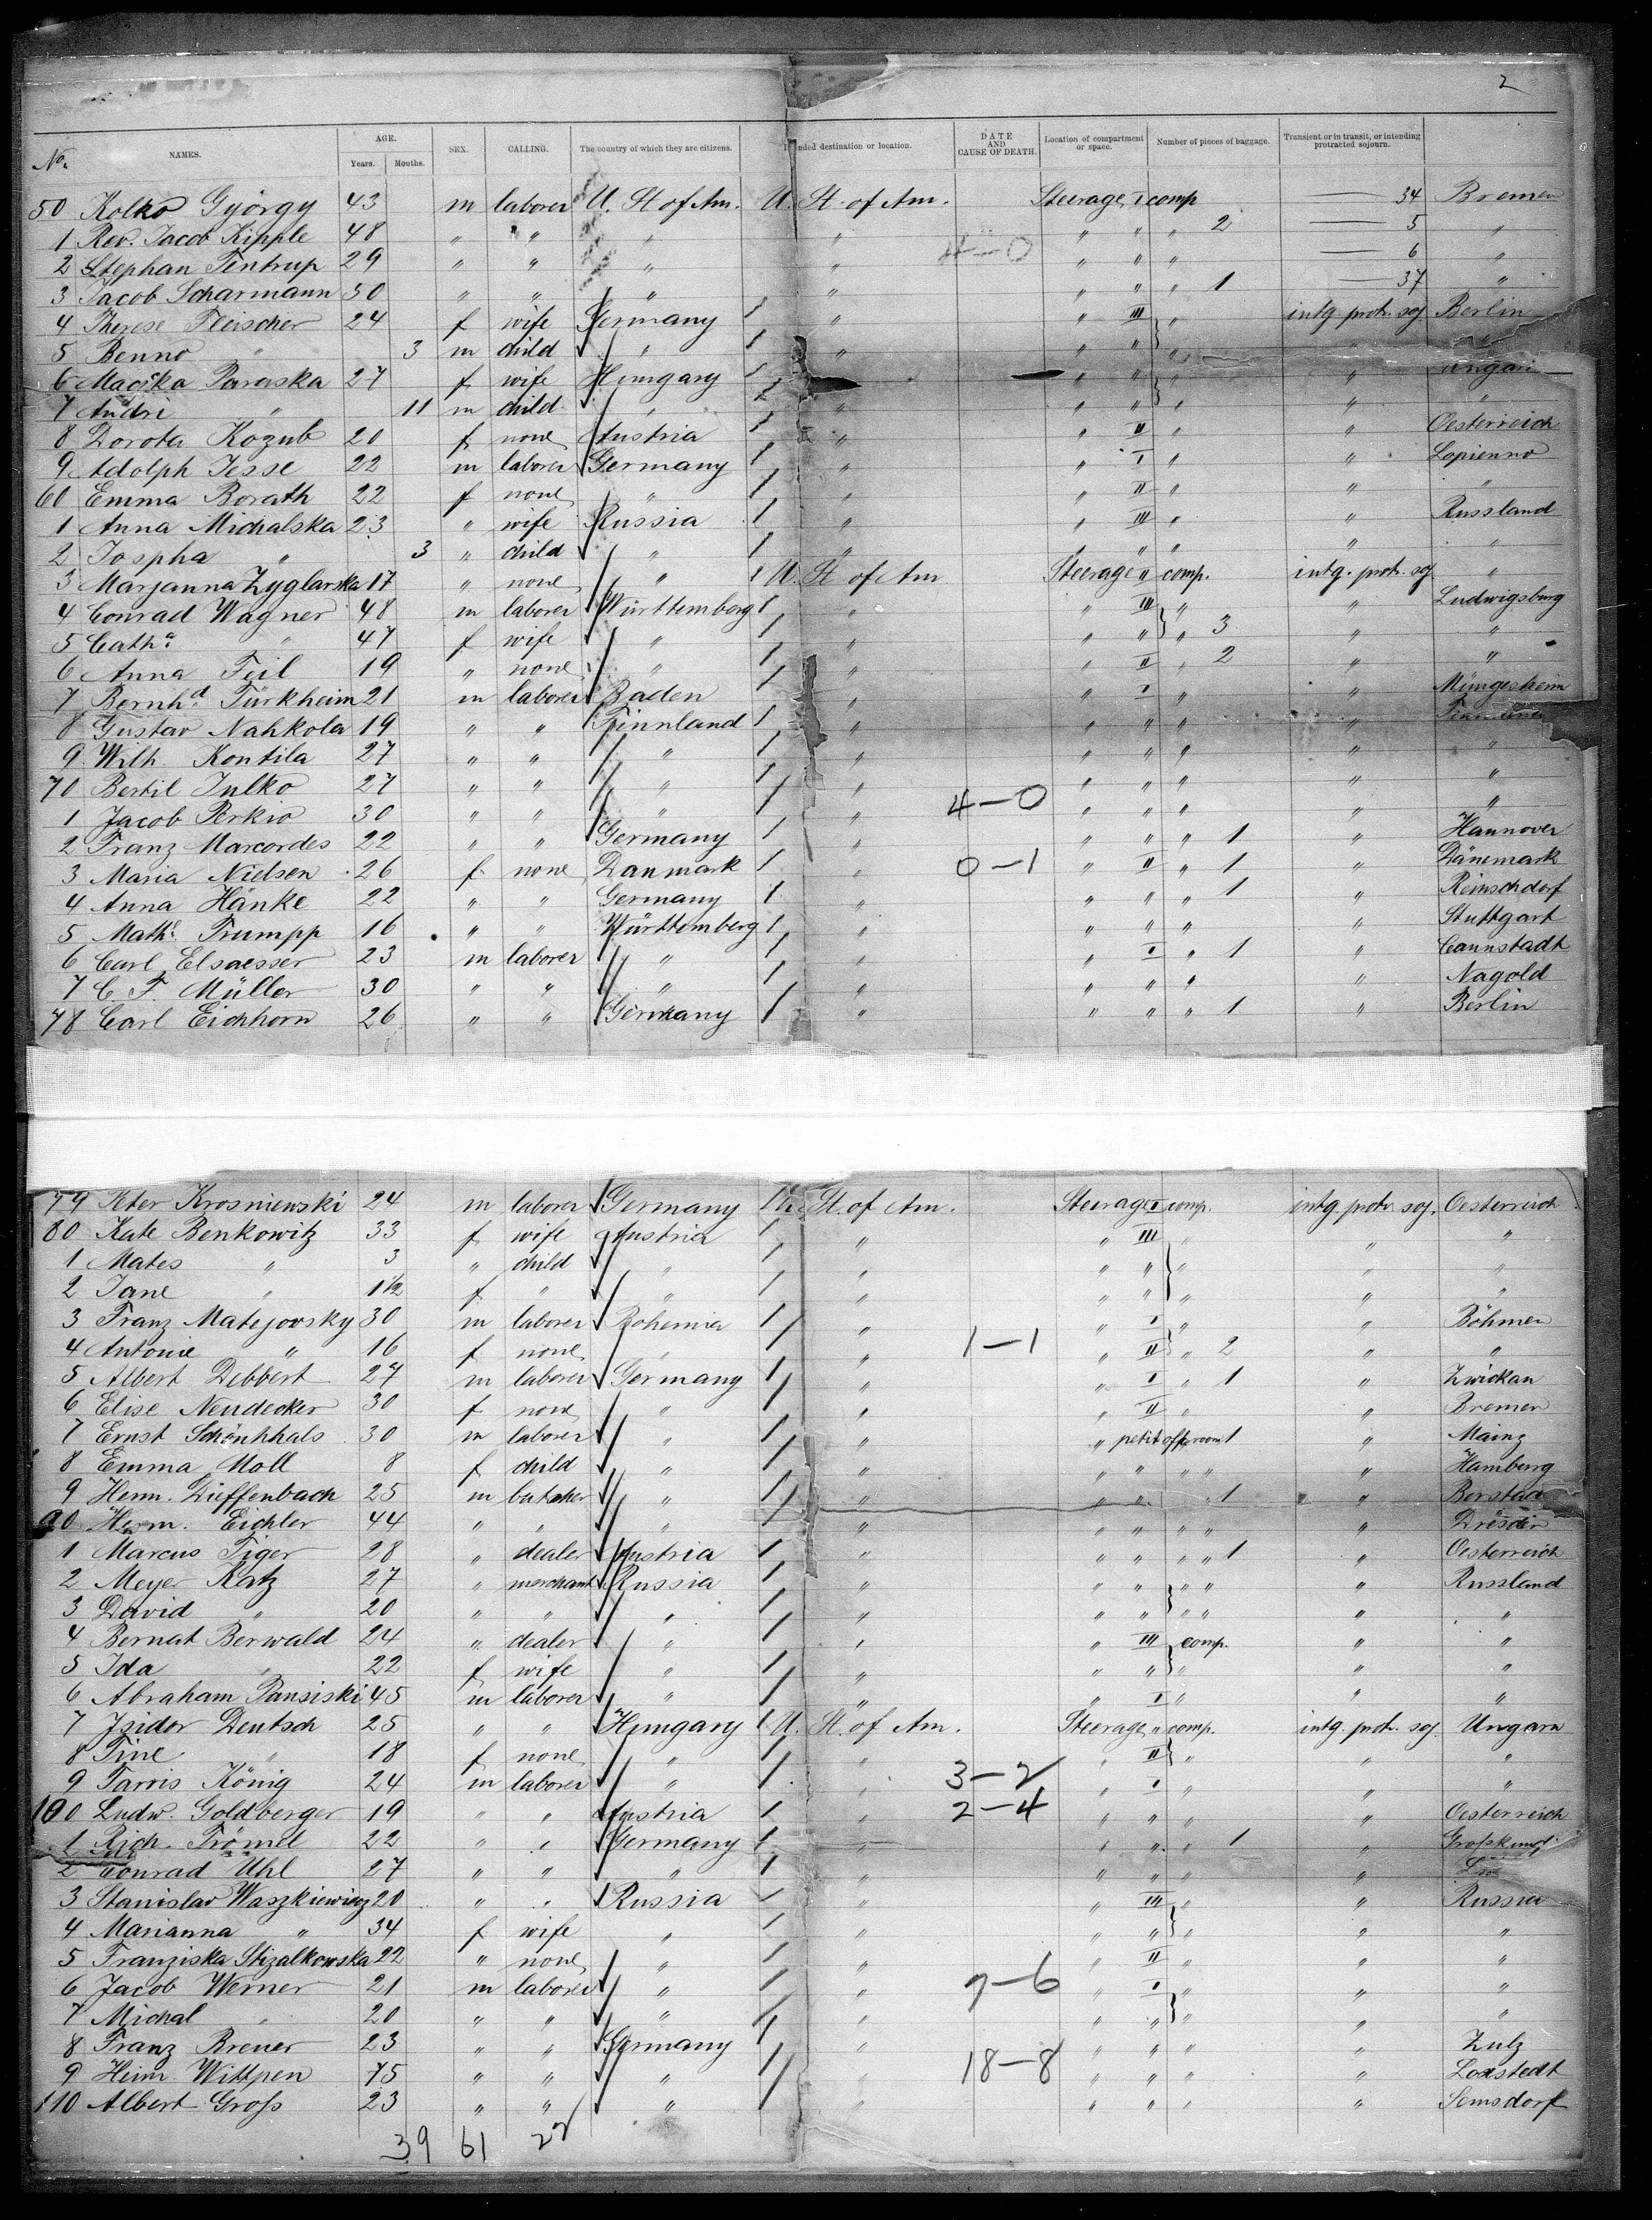 2
No. NAMES. AGE. Years. Months. SEX. CALLING. The country of which they are citizens. nded destination or location. DATE AND CAUSE OF DEATH. Location of compartment or space. Number of pieces of baggage. Transient or in transit, or intending protracted sojourn.
50 Kolko György 43 m laborer U. St of Am. U. St. of Am. Steerage I comp — 34 Bremen
1 Rev. Jacob Kipple 48 " " " " " " " 2 — 5 "
2 Stephan Tintrup 29 " " " " 4—0 " " " — 6 "
3 Jacob Scharmann 30 " " " " " " " 1 — 37 "
4 Therese Fleischer 24 f wife Germany 1 " " III " intg. protr. soj Berlin
5 Benno " 3 m child " 1 " " " "
6 Paraska 27 f wife Hungary 1 " " " " " Ungarn
7 Andri " 11 m child " " " " " " "
8 Dorota Kozub 20 f none Austria 1 " " II " " Oesterreich
9 Adolph Jesse 22 m laborer Germany 1 " " I " " Lopienno
60 Emma Borath 22 f none " 1 " " II " " "
1 Anna Michalska 23 " wife Russia 1 " " III " " Russland
2 Jospha " 3 " child " 1 " " " " " "
3 Marjanna Zyglarska 17 " none " 1 U. St of Am Steerage " comp. intg. protr. soj "
4 Conrad Wagner 48 m laborer Württemberg 1 " " III " " Ludwigsburg
5 Catha " 47 f wife " 1 " " " " 3 " "
6 Anna Feil 19 " none " 1 " " II " 2 " "
7 Bernhd Türkheim 21 m laborer Baden 1 " " I " " Müngesheim
8 Gustav Nahkola 19 " " Finnland 1 " " " " "
9 Wilh Kontila 27 " " " 1 " " " " " "
70 Bertil Julko 27 " " " 1 " " " " " "
1 Jacob Perkio 30 " " " 1 " 4—0 " " " " "
2 Franz Marcordes 22 " " Germany 1 " " " " 1 " Hannover
3 Maria Nielsen 26 f none Danmark 1 " 0—1 " II " 1 " Dänemark
4 Anna Hänke 22 " " Germany 1 " " " " 1 " Reinschdorf
5 Mathe Trumpp 16 " " Württemberg 1 " " " " " Stuttgart
6 Carl Elsaesser 23 m laborer " 1 " " I " 1 " Cannstadt
7 C. F. Müller 30 " " " 1 " " " " " Nagold
78 Carl Eichhorn 26 " " Germany 1 " " " " 1 " Berlin
79 Peter Krosniewski 24 m laborer Germany 1 U. St. of Am. Steerage I comp. intg. protr. soj. Oesterreich
80 Kate Benkowitz 33 f wife Austria 1 " " III " " "
1 Mates " 3 " child " 1 " " " " " "
2 Jane " 1½ f " " 1 " " " " " "
3 Franz Matejovsky 30 m laborer Bohemia 1 " " I " " Böhmen
4 Antonie " 16 f none " 1 " 1—1 " II " 2 " "
5 Albert Debbert 27 m laborer Germany 1 " " I " 1 " Zwickau
6 Elise Neudecker 30 f none " 1 " " II " " Bremen
7 Ernst Schönhhals 30 m laborer " 1 " " petit room 1 " Mainz
8 Emma Moll 8 f child " 1 " " " " " " Hamburg
9 Herm. Dieffenbach 25 m butcher " 1 " " " " 1 " Berstad
90 Herm. Eichler 44 " " " 1 " " " " " " Dresden
1 Marcus Tiger 28 " dealer Austria 1 " " " " " 1 " Oesterreich
2 Meyer Katz 27 " merchant Russia 1 " " " " " " Russland
3 David " 20 " " " 1 " " " " " " "
4 Bernat Berwald 24 " dealer " 1 " " III comp. " "
5 Ida " 22 f wife " 1 " " " " " "
6 Abraham Pansiski 45 m laborer " 1 " " I " " "
7 Isidor Deutsch 25 " " Hungary 1 U. St. of Am. Steerage " comp. intg. protr. soj. Ungarn
8 Tine " 18 f none " 1 " " II " " "
9 König 24 m laborer " 1 " 3—2 " I " " "
100 Ludw. Goldberger 19 " " Austria 1 " 2—4 " " " " Oesterreich
1 Rich. Trömel 22 " " Germany 1 " " " " 1 "
2 Conrad Uhl 27 " " " 1 " " " " "
3 Stanislav Waszkiewicz 20 " " Russia 1 " " III " " Russia
4 Marianna " 34 f wife " 1 " " " " " "
5 Franziska Stizalkowska 22 " none " 1 " " II " " "
6 Jacob Werner 21 m laborer " 1 " 7—6 " I " " "
7 Michal " 20 " " " 1 " " " " " "
8 Franz Brener 23 " " Germany 1 " " " " " Zulz
9 Heinr Wittpen 75 " " " 1 " 18—8 " " " " Loxstedt
110 Albert Groß 23 " " " 1 " " " " " Semsdorf
39 61 22